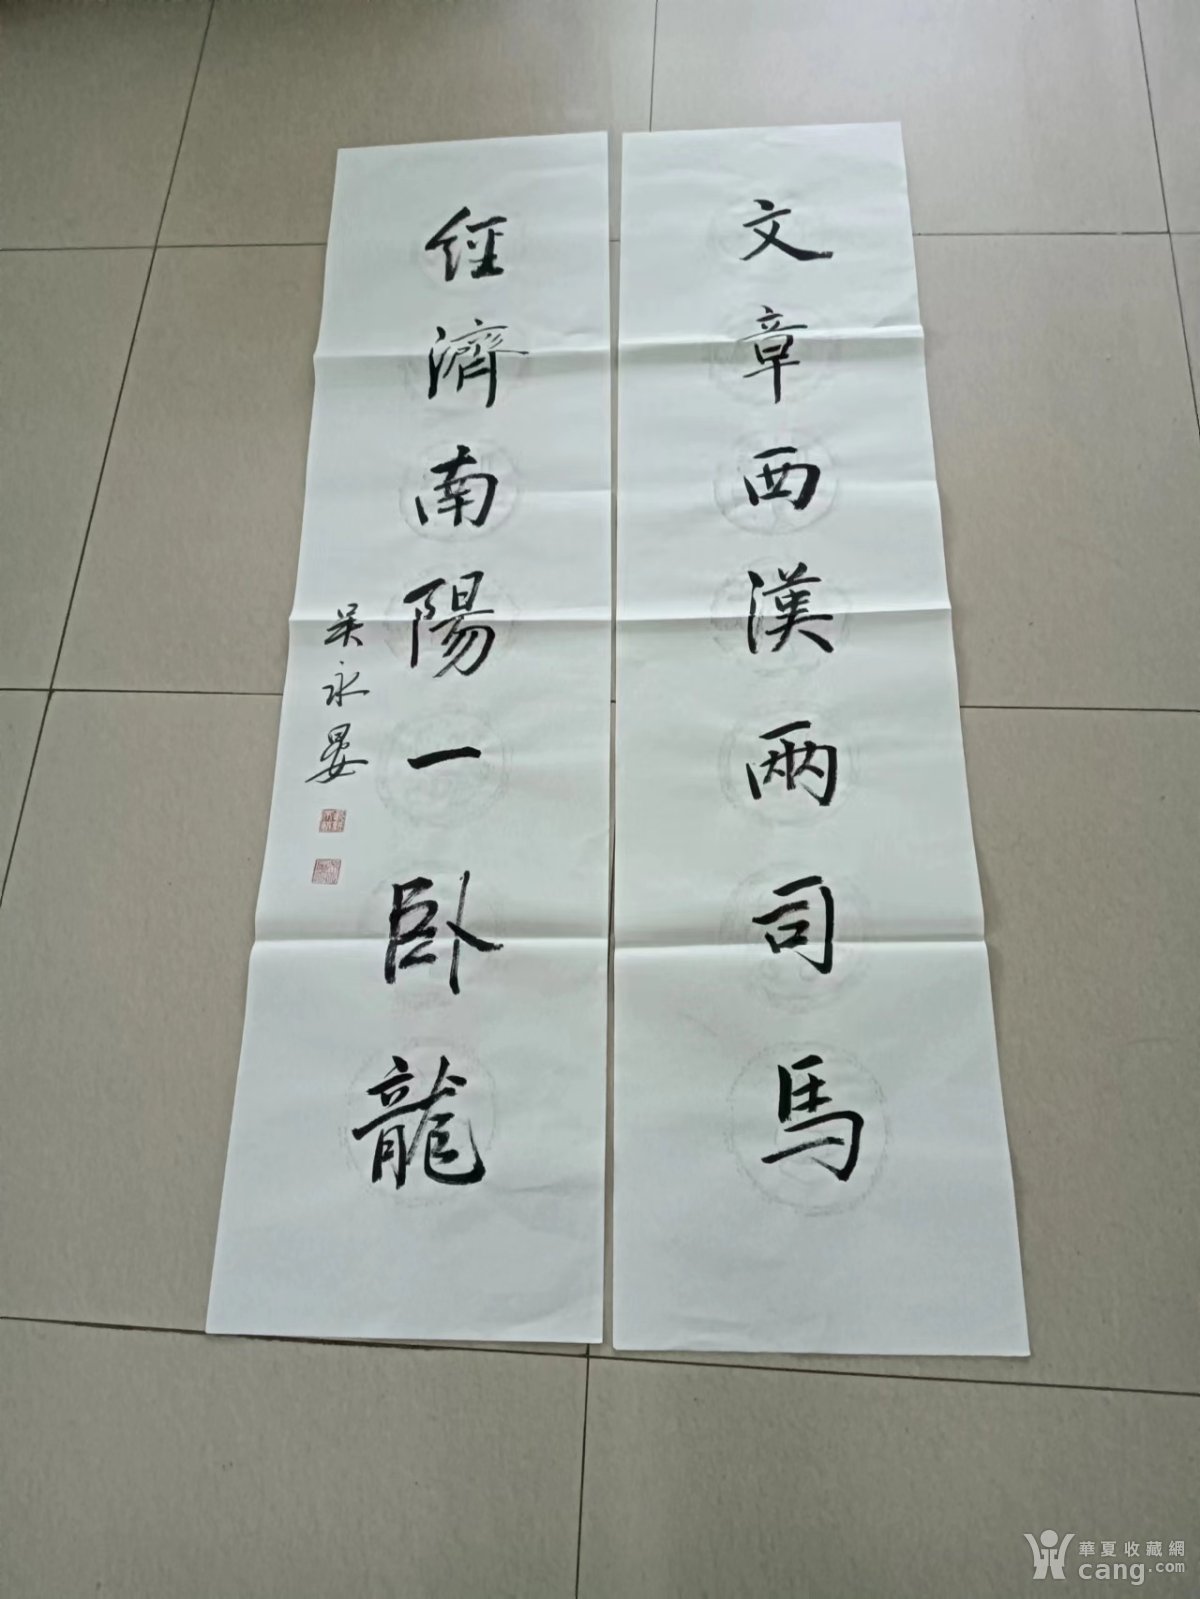 文章西漢兩司馬
經濟南陽一卧龍
吴永晏
華夏收藏網
cang.com